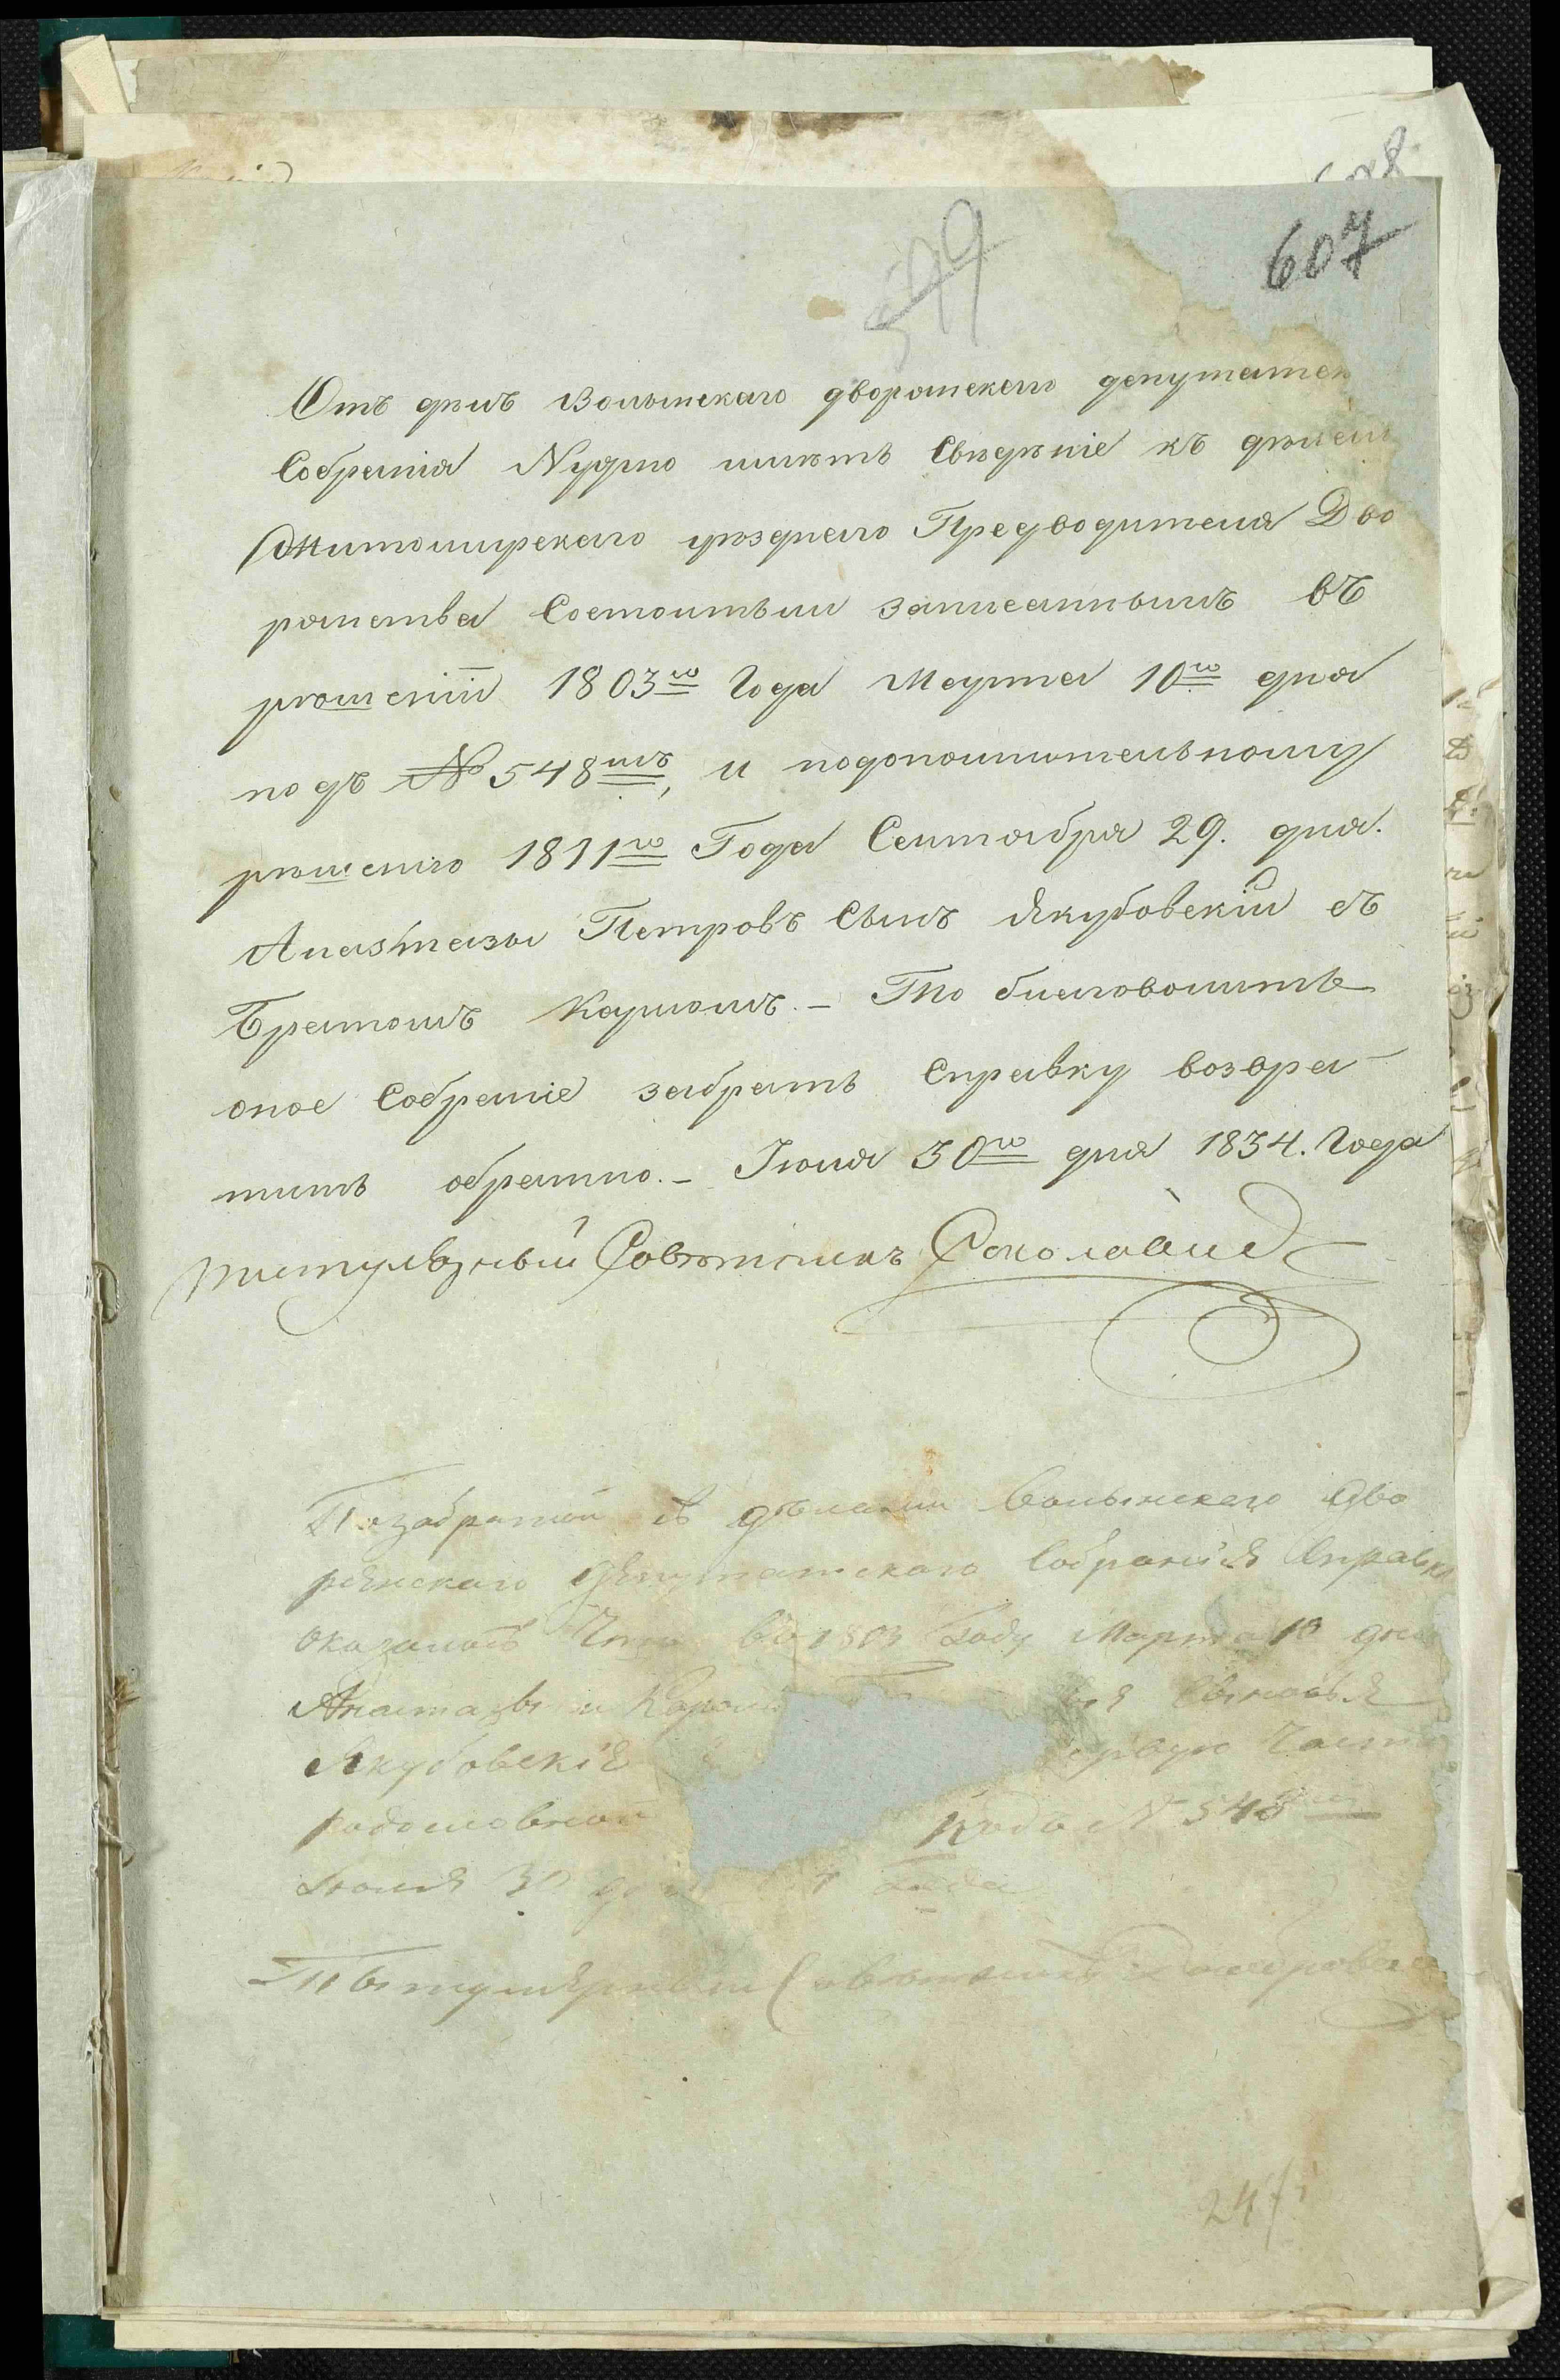 607
579
Отъ дѣлъ Волынскаго дворянскаго депутатск
Собранія Нужно имѣть Свѣдѣніе къ дѣлам
Житомирскаго уѣзднаго Предводителя Дво
рянства Состоитьли записаннымъ въ
рѣшеніи 1803го Года Марта 10го дня
подъ № 548мъ, и подополнительному
рѣшенію 1811го Года Сентября 29. дня.
Анастазы Петровъ Сынъ Якубовскій съ
Братомъ Каролмъ. – То благоволитъ
оное Собраніе забрать Справку возвра-
тить обратно. – Іюля 30го дня 1834. Года
титулярный Совѣтникъ
Позабратой въ дѣлахъ Волынскаго Дво
рянскаго Депутатскаго Собранія Справк
оказалось Что въ 1803 Году Марта 10 дня
Анастазы и Кароль Сыновья
Якубовскіе ервую Часть
родословной подъ N 548мъ
Іюля 30 4 Года
Титулярный Совѣтникъ
24